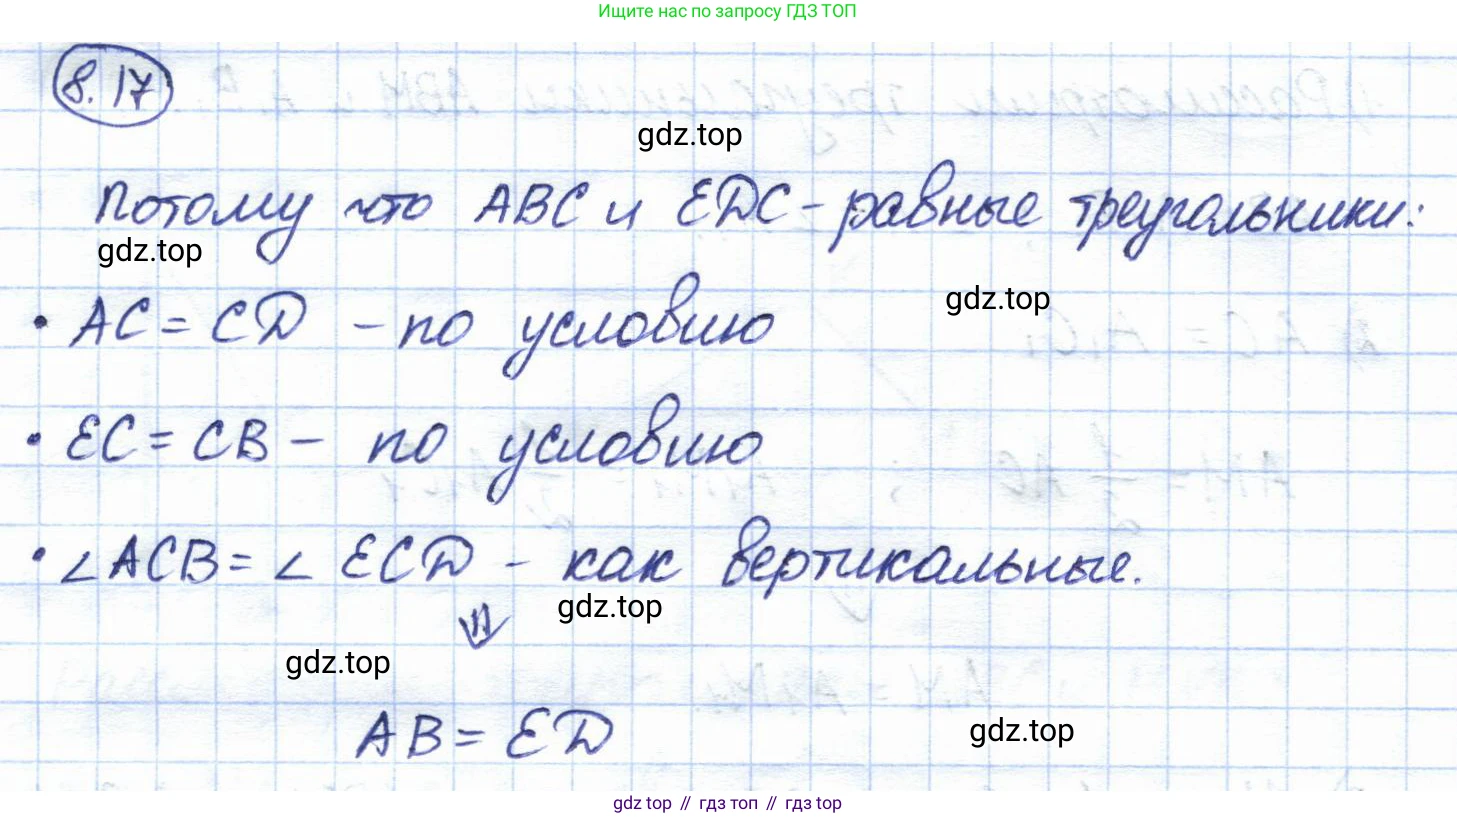 Ищите нас по запросу ГДЗ ТОП
8.17
gdz.top
Потому что ABC и EDC - равные треугольники:
gdz.top
gdz.top
• AC = CD - по условию
• EC = CB - по условию
• ∠ ACB = ∠ ECD - как вертикальные.
gdz.top
⇓
gdz.top
AB = ED
gdz.top
gdz top // гдз топ // гдз top